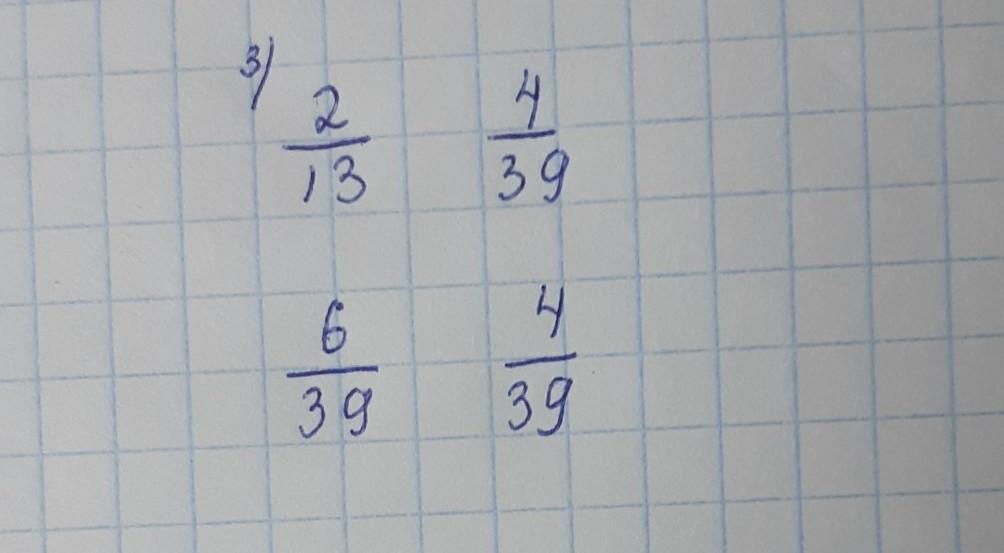 3) 2/13 4/39
6/39 4/39